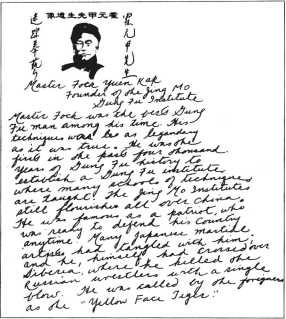 霍元甲先生遺像
Master Fock Yuen Kap
Founder of the Jing Mo
Gung Fu Institute
Master Fock was the best Gung
Fu man among his time. His
techniques was as legendary
as it was true. He was the
first in the past four thousand
years of Gung Fu history to
establish a Gung Fu institute
where many schools of techniques
are taught. The Jing Mo Institutes
still flourishes all over China.
He was famous as a patriot, who
was ready to defend his country
anytime. Many Japanese martial
artists had tangled with him;
and he, himself, had crossed over
Siberia, where he killed the
Russian wrestlers with a single
blow. He was called by the foreigners
as the "Yellow Face Tiger."